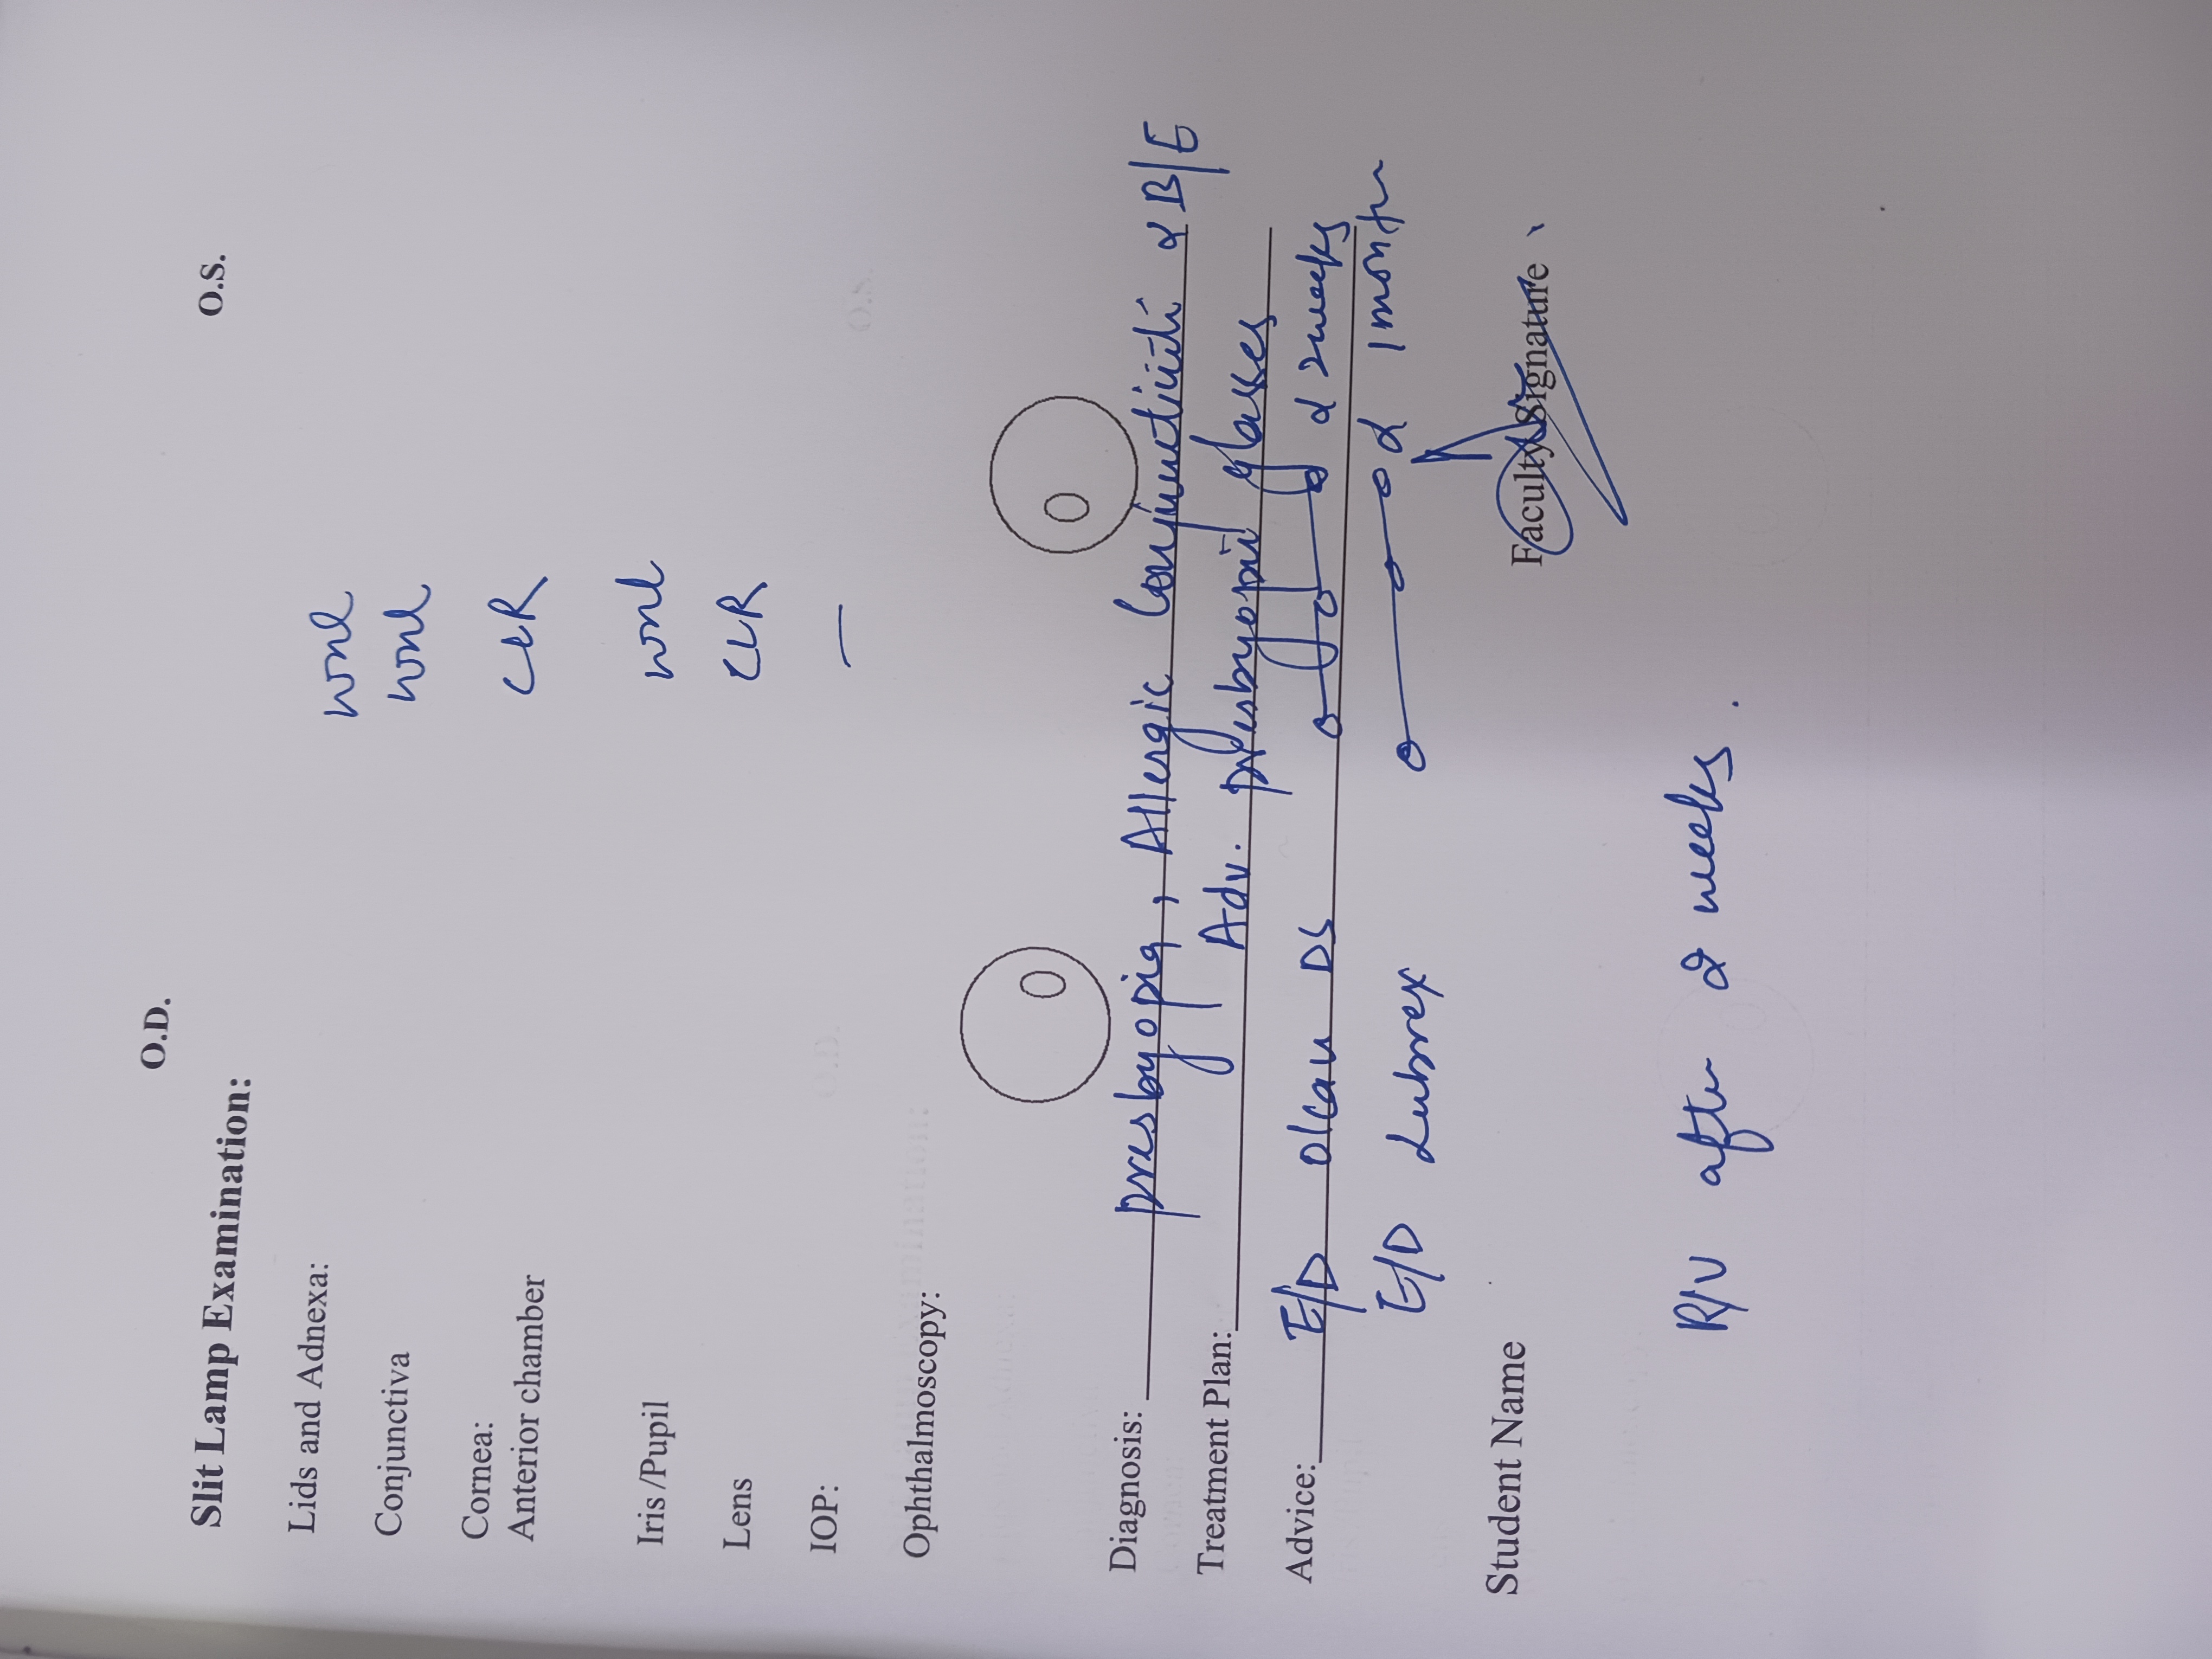 O.D.
O.S.
Slit Lamp Examination:
Lids and Adnexa: wnl
Conjunctiva wnl
Cornea:
Anterior chamber CLR
Iris /Pupil wnl
Lens CLR
IOP: —
Ophthalmoscopy:
Diagnosis: presbyopia, Allergic Conjunctiviti B/E
Treatment Plan: Adv. presbyopic glasses
Advice: E/D DS 2weeks
E/D Lubrex 1 month
Student Name
Faculty Signature
R/V after 2 weeks.